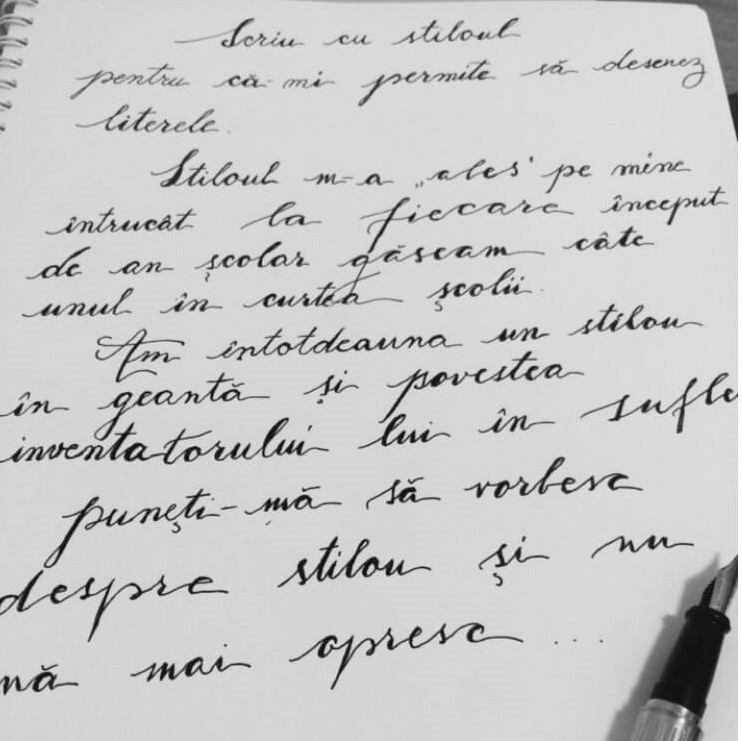 Scriu cu stiloul
pentru că-mi permite să desenez
literele.
Stiloul m-a „ales" pe mine
întrucât la fiecare început
de an școlar găseam câte
unul în curtea școlii.
Am întotdeauna un stilou
în geantă și povestea
inventatorului lui în sufle
puneți-mă să vorbesc
despre stilou și nu
mă mai opresc ...